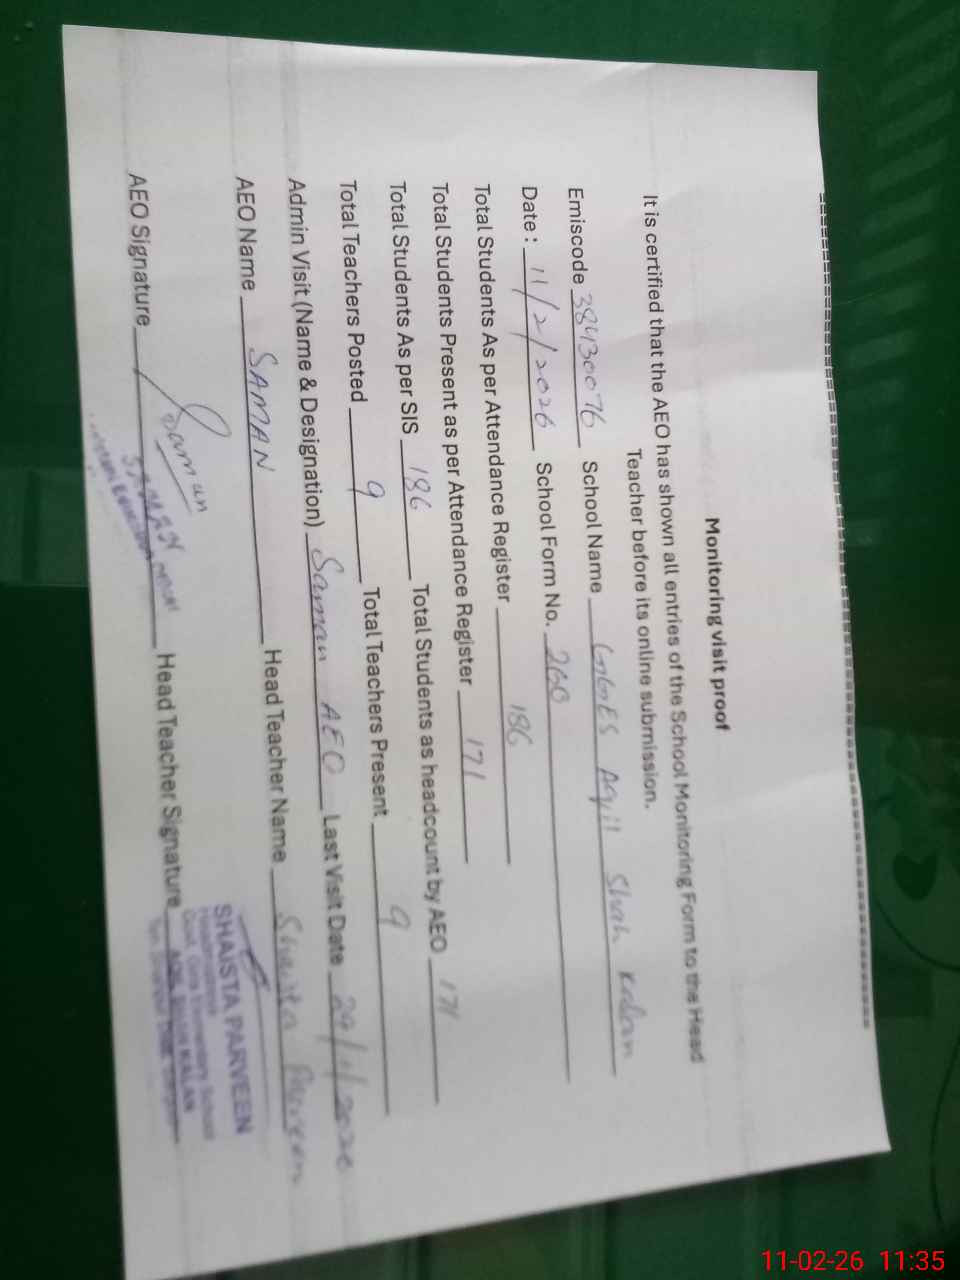 Monitoring visit proof
It is certified that the AEO has shown all entries of the School Monitoring Form to the Head
Teacher before its online submission.
Emiscode 38430076 School Name GGES Aqil Shah Kalan
Date : 11/2/2026 School Form No. 260
Total Students As per Attendance Register 186
Total Students Present as per Attendance Register 171
Total Students As per SIS 186 Total Students as headcount by AEO 171
Total Teachers Posted 9 Total Teachers Present 9
Admin Visit (Name & Designation) Saman AEO Last Visit Date 29/1/2026
AEO Name SAMAN Head Teacher Name Shaista Parveen
AEO Signature Saman Head Teacher Signature
SAMAN
SHAISTA PARVEEN
Headmistress
Govt. Girls Elementary School
AQIL SHAH KALAN
11-02-26 11:35